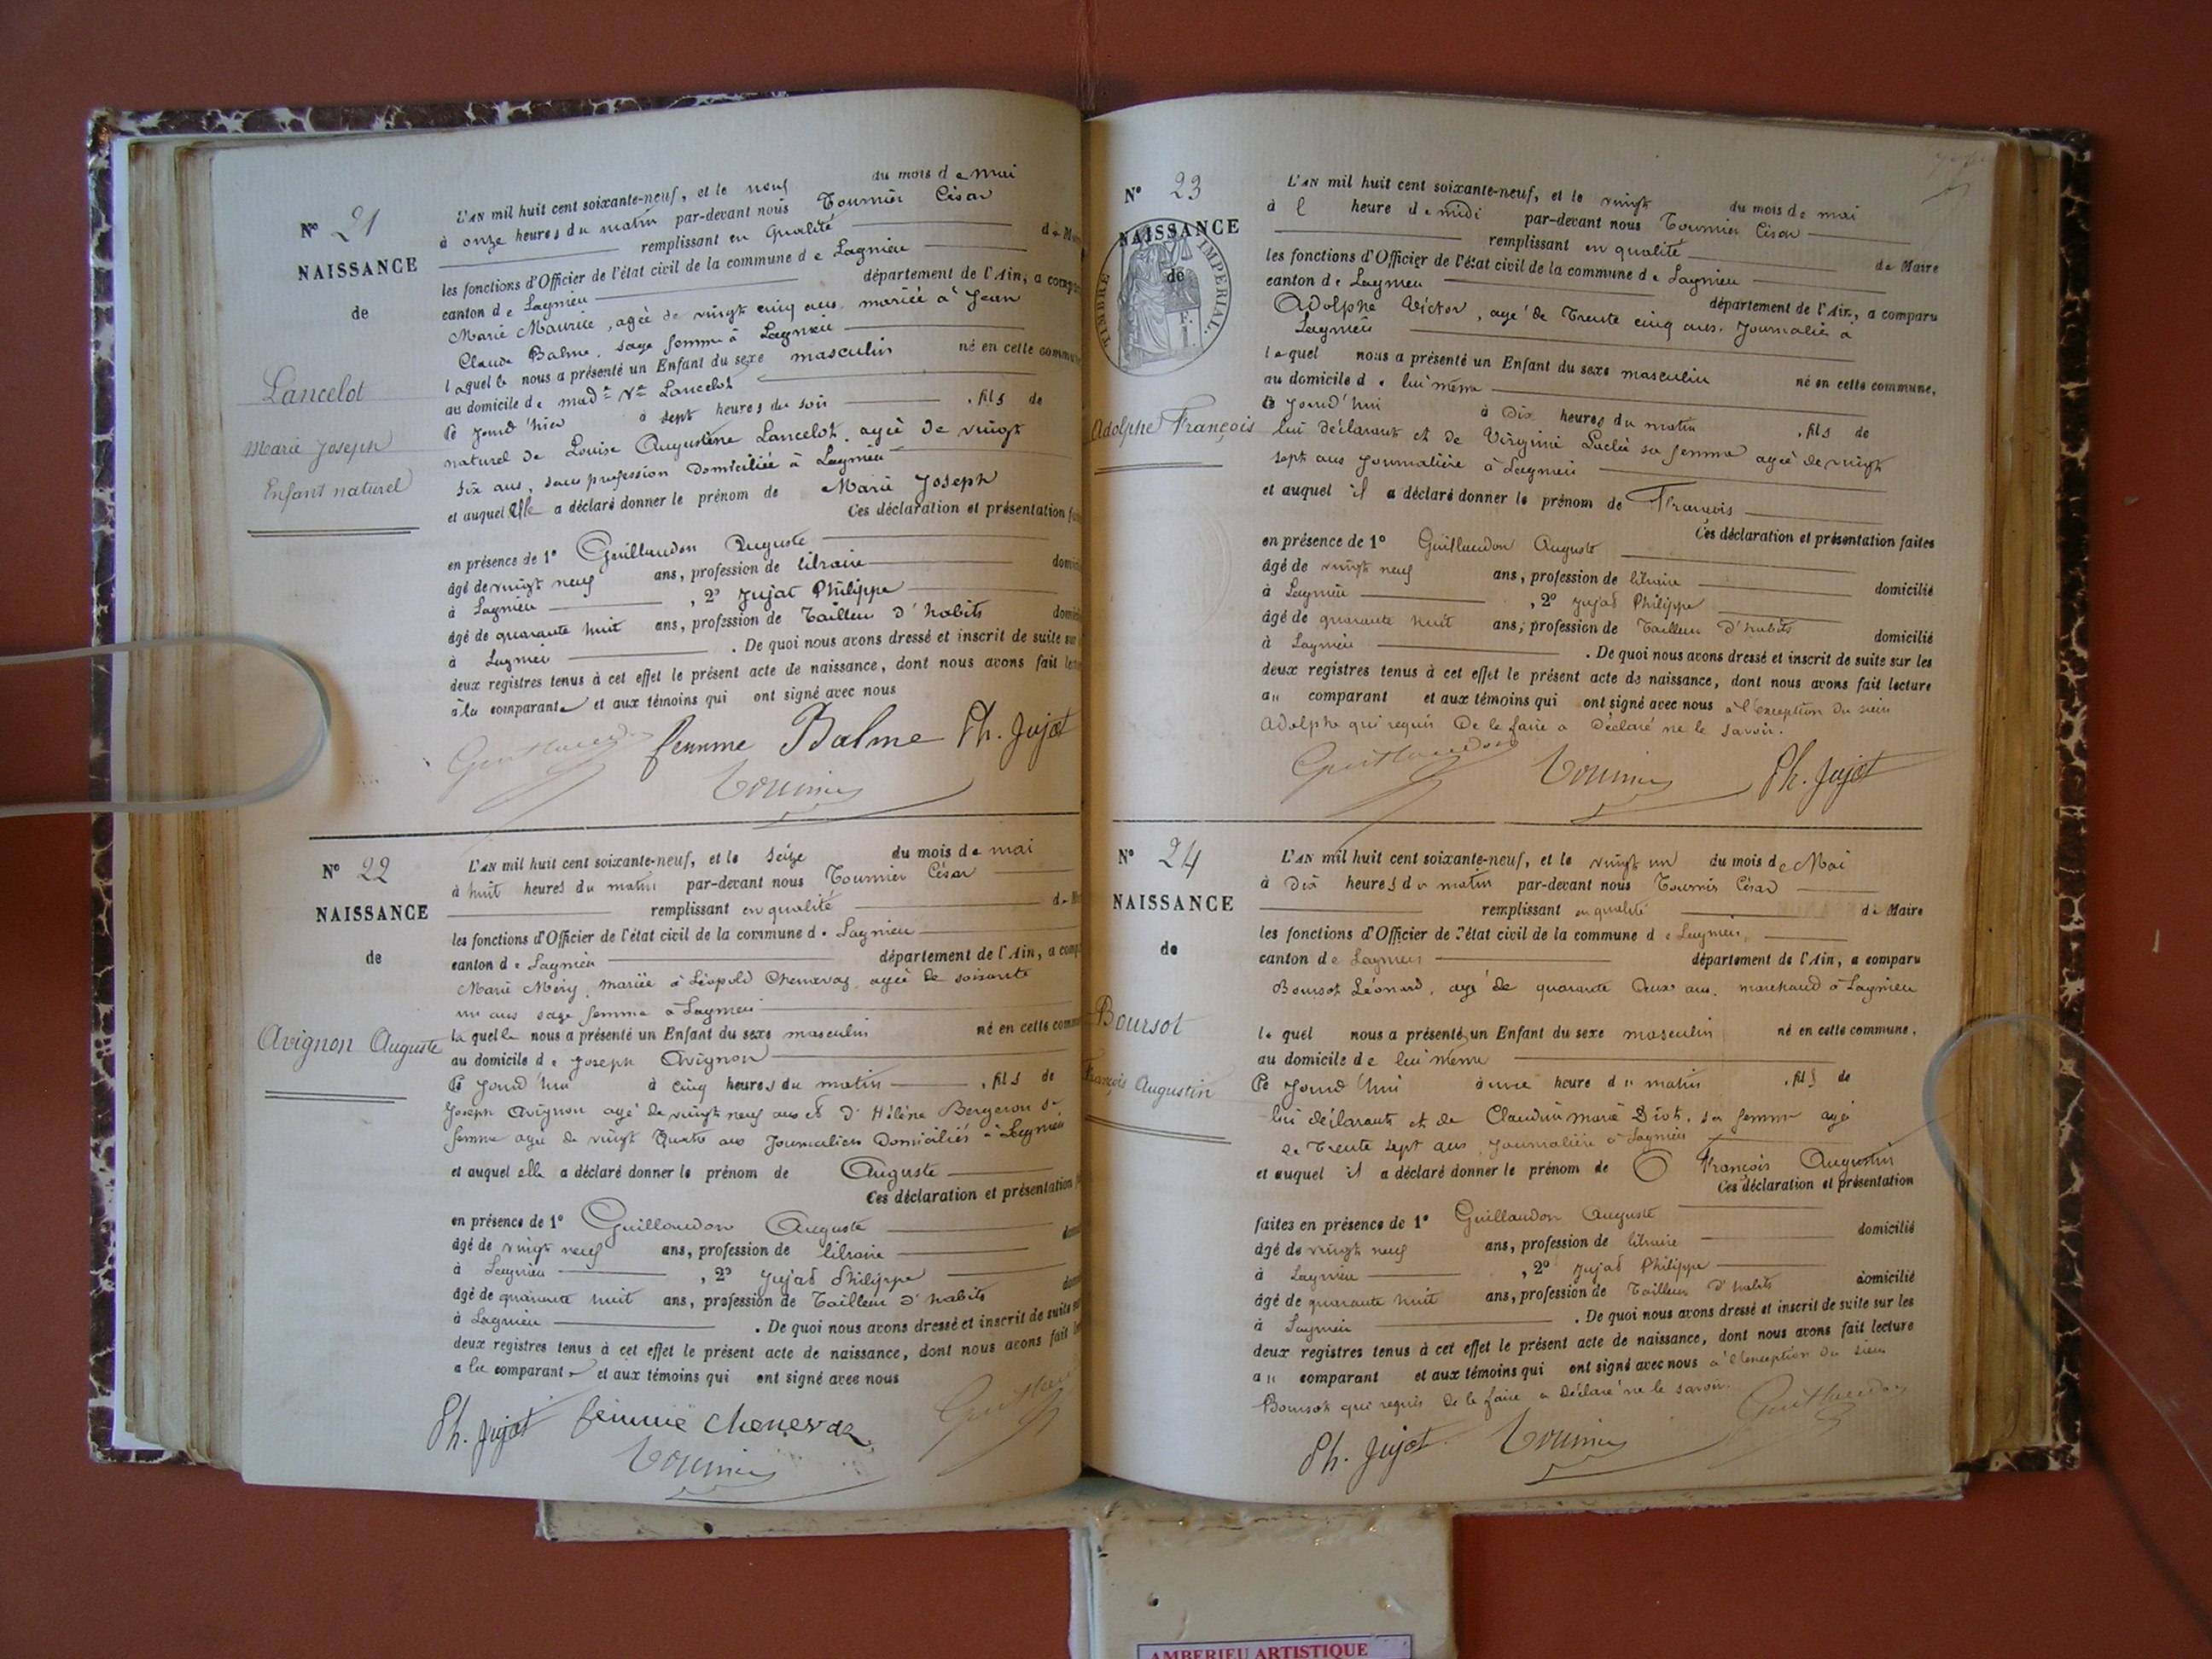 N° 21
NAISSANCE
de
Lancelot
Marie Joseph
Enfant naturel
L'AN mil huit cent soixante-neuf, et le neuf du mois de mai
à onze heures du matin par-devant nous Tournier César
remplissant en qualité de M
les fonctions d'Officier de l'état civil de la commune de Lagnieu
canton de Lagnieu département de l'Ain, a compa
Marie Maurice, agée de vingt cinq ans mariée à Jean
Claude Balme, sage femme à Lagnieu
laquelle nous a présenté un Enfant du sexe masculin né en cette commu
au domicile de mad.e V.e Lancelot
Ce jourd'hier à sept heures du soir, fils de
naturel de Louise Augustine Lancelot, agée de vingt
six ans, sans profession domiciliée à Lagnieu
et auquel elle a déclaré donner le prénom de Marie Joseph
Ces déclaration et présentation fa
en présence de 1° Guillaudon Auguste
âgé de vingt neuf ans, profession de libraire domi
à Lagnieu, 2° Jujat Philippe
âgé de quarante huit ans, profession de Tailleur d'habits domi
à Lagnieu. De quoi nous avons dressé et inscrit de suite sur
deux registres tenus à cet effet le présent acte de naissance, dont nous avons fait le
à la comparante et aux témoins qui ont signé avec nous
Guillaudon femme Balme Ph. Jujat
Tournier
N° 22
NAISSANCE
de
Avignon Auguste
L'AN mil huit cent soixante-neuf, et le seize du mois de mai
à huit heures du matin par-devant nous Tournier César
remplissant en qualité de M
les fonctions d'Officier de l'état civil de la commune de Lagnieu
canton de Lagnieu département de l'Ain, a comp
Marie Méry, mariée à Léopold Chenavaz, agée de soixante
un ans sage femme à Lagnieu
laquelle nous a présenté un Enfant du sexe masculin né en cette comm
au domicile de Joseph Avignon
Ce jourd'hui à cinq heures du matin, fils de
Joseph Avignon agé de vingt neuf ans et d'Hélène Bergeron sa
femme agée de vingt quatre ans Journaliers domiciliés à Lagnieu
et auquel elle a déclaré donner le prénom de Auguste
Ces déclaration et présentation f
en présence de 1° Guillaudon Auguste
âgé de vingt neuf ans, profession de libraire dom
à Lagnieu, 2° Jujat Philippe
âgé de quarante huit ans, profession de Tailleur d'habits dom
à Lagnieu. De quoi nous avons dressé et inscrit de suite su
deux registres tenus à cet effet le présent acte de naissance, dont nous avons fait le
a la comparante et aux témoins qui ont signé avec nous
Ph. Jujat femme chenevaz Guillau
Tournier
N° 23
NAISSANCE
de
TIMBRE IMPERIAL
Adolphe François
L'AN mil huit cent soixante-neuf, et le vingt du mois de mai
à l heure de midi par-devant nous Tournier César
remplissant en qualité de Maire
les fonctions d'Officier de l'état civil de la commune de Lagnieu
canton de Lagnieu département de l'Ain, a comparu
Adolphe Victor, agé de Trente cinq ans. Journalier à
Lagnieu
lequel nous a présenté un Enfant du sexe masculin né en cette commune,
au domicile de lui même
Ce jourd'hui à dix heures du matin, fils de
lui déclarant et de Virginie sa femme agée de vingt
sept ans journalière à Lagnieu
et auquel il a déclaré donner le prénom de François
Ces déclaration et présentation faites
en présence de 1° Guillaudon Auguste
âgé de vingt neuf ans, profession de libraire domicilié
à Lagnieu, 2° Jujat Philippe
âgé de quarante huit ans, profession de Tailleur d'habits domicilié
à Lagnieu. De quoi nous avons dressé et inscrit de suite sur les
deux registres tenus à cet effet le présent acte de naissance, dont nous avons fait lecture
au comparant et aux témoins qui ont signé avec nous à l'exception du sieur
Adolphe qui requis de le faire a déclaré ne le savoir.
Guillaudon Tournier Ph. Jujat
N° 24
NAISSANCE
de
Boursot
François Augustin
L'AN mil huit cent soixante-neuf, et le vingt un du mois de Mai
à dix heures du matin par-devant nous Tournier César
remplissant en qualité de Maire
les fonctions d'Officier de l'état civil de la commune de Lagnieu,
canton de Lagnieu département de l'Ain, a comparu
Boursot Léonard, agé de quarante deux ans, marchand à Lagnieu
lequel nous a présenté un Enfant du sexe masculin né en cette commune,
au domicile de lui même
Ce jourd'hui à une heure du matin, fils de
lui déclarant et de Claudine marie Diot, sa femme agée
de Trente sept ans, Journalière à Lagnieu
et auquel il a déclaré donner le prénom de François Augustin
Ces déclaration et présentation
faites en présence de 1° Guillaudon Auguste
âgé de vingt neuf ans, profession de libraire domicilié
à Lagnieu, 2° Jujat Philippe
âgé de quarante huit ans, profession de Tailleur d'habits domicilié
à Lagnieu. De quoi nous avons dressé et inscrit de suite sur les
deux registres tenus à cet effet le présent acte de naissance, dont nous avons fait lecture
au comparant et aux témoins qui ont signé avec nous à l'exception du sieur
Boursot qui requis de le faire a déclaré ne le savoir.
Guillaudon
Ph. Jujat Tournier
AMBERIEU ARTISTIQUE